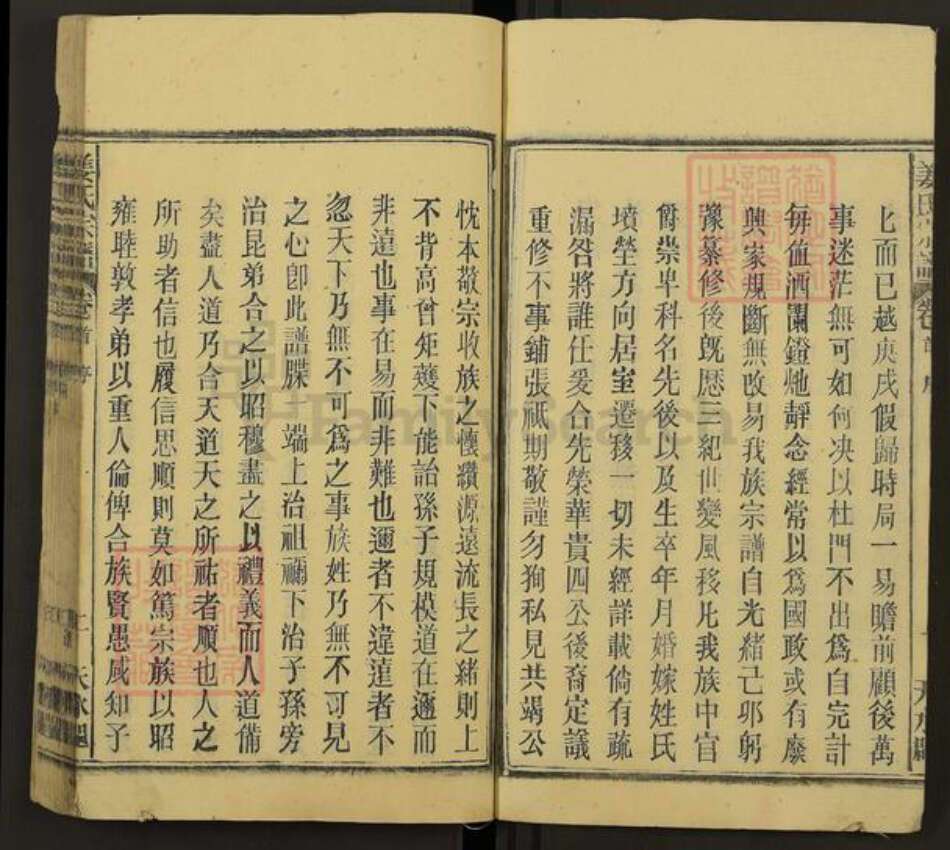 七而已越庚戌假歸時局一易瞻前顧後萬
事迷茫無可如何决以杜門不出爲自完計
每值酒闌鐙灺靜念經常以爲國政或有廢
興家規斷無改易我族宗譜自光緒己卯躬
豫纂修後旣歷三紀世變風移凡我族中官
爵崇卑科名先後以及生卒年月婚嫁姓氏
墳塋方向居室遷移一切未經詳載倘有疏
漏咎將誰任爰合先榮華貴四公後裔定議
重修不事鋪張祗期敬謹勿狥私見共竭公
忱本敬宗收族之懷纘源遠流長之緒則上
不背高曾矩矱下能詒孫子規模道在邇而
非遠也事在易而非難也邇者不違遠者不
忽天下乃無不可爲之事族姓乃無不可見
之心卽此譜牒一端上治祖禰下治子孫旁
治昆弟合之以昭穆盡之以禮義而人道備
矣盡人道乃合天道天之所祐者順也人之
所助者信也履信思順則莫如篤宗族以昭
雍睦敦孝弟以重人倫俾合族賢愚咸知子
姜氏宗譜 卷首 序
二 天水
FamilySearch